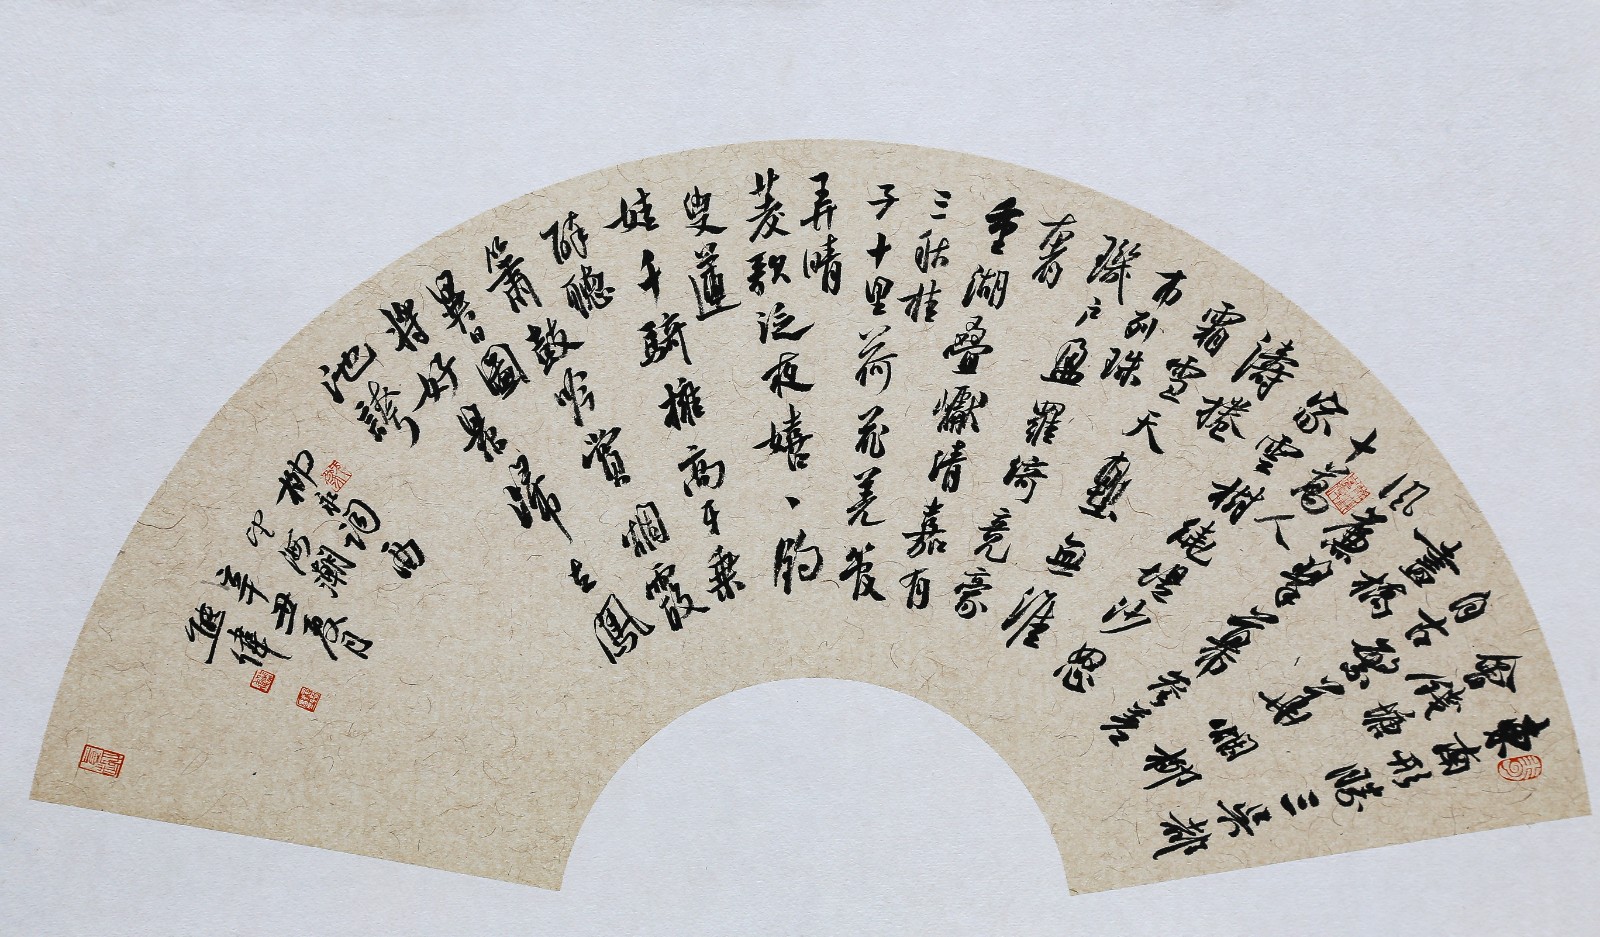 東南形勝三吳都
會錢塘
自古繁華烟柳
畫橋
風簾翠幕參差
十萬人
家雲樹繞堤沙怒
濤捲
霜雪天塹無涯
市列珠
璣戶盈羅綺競豪
奢
重湖疊巘清嘉有
三秋桂
子十里荷花羌管
弄晴
菱歌泛夜嬉、釣
叟蓮
娃千騎擁高牙乘
醉聽
簫鼓吟賞烟霞
異日圖
將好景歸去鳳
池誇
柳永詞曲
望海潮
辛丑